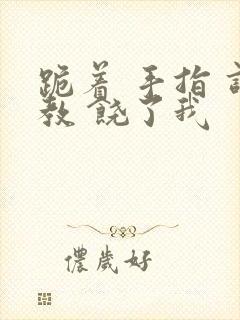 跪着 手指 讠
教 饶了我
儂歲好